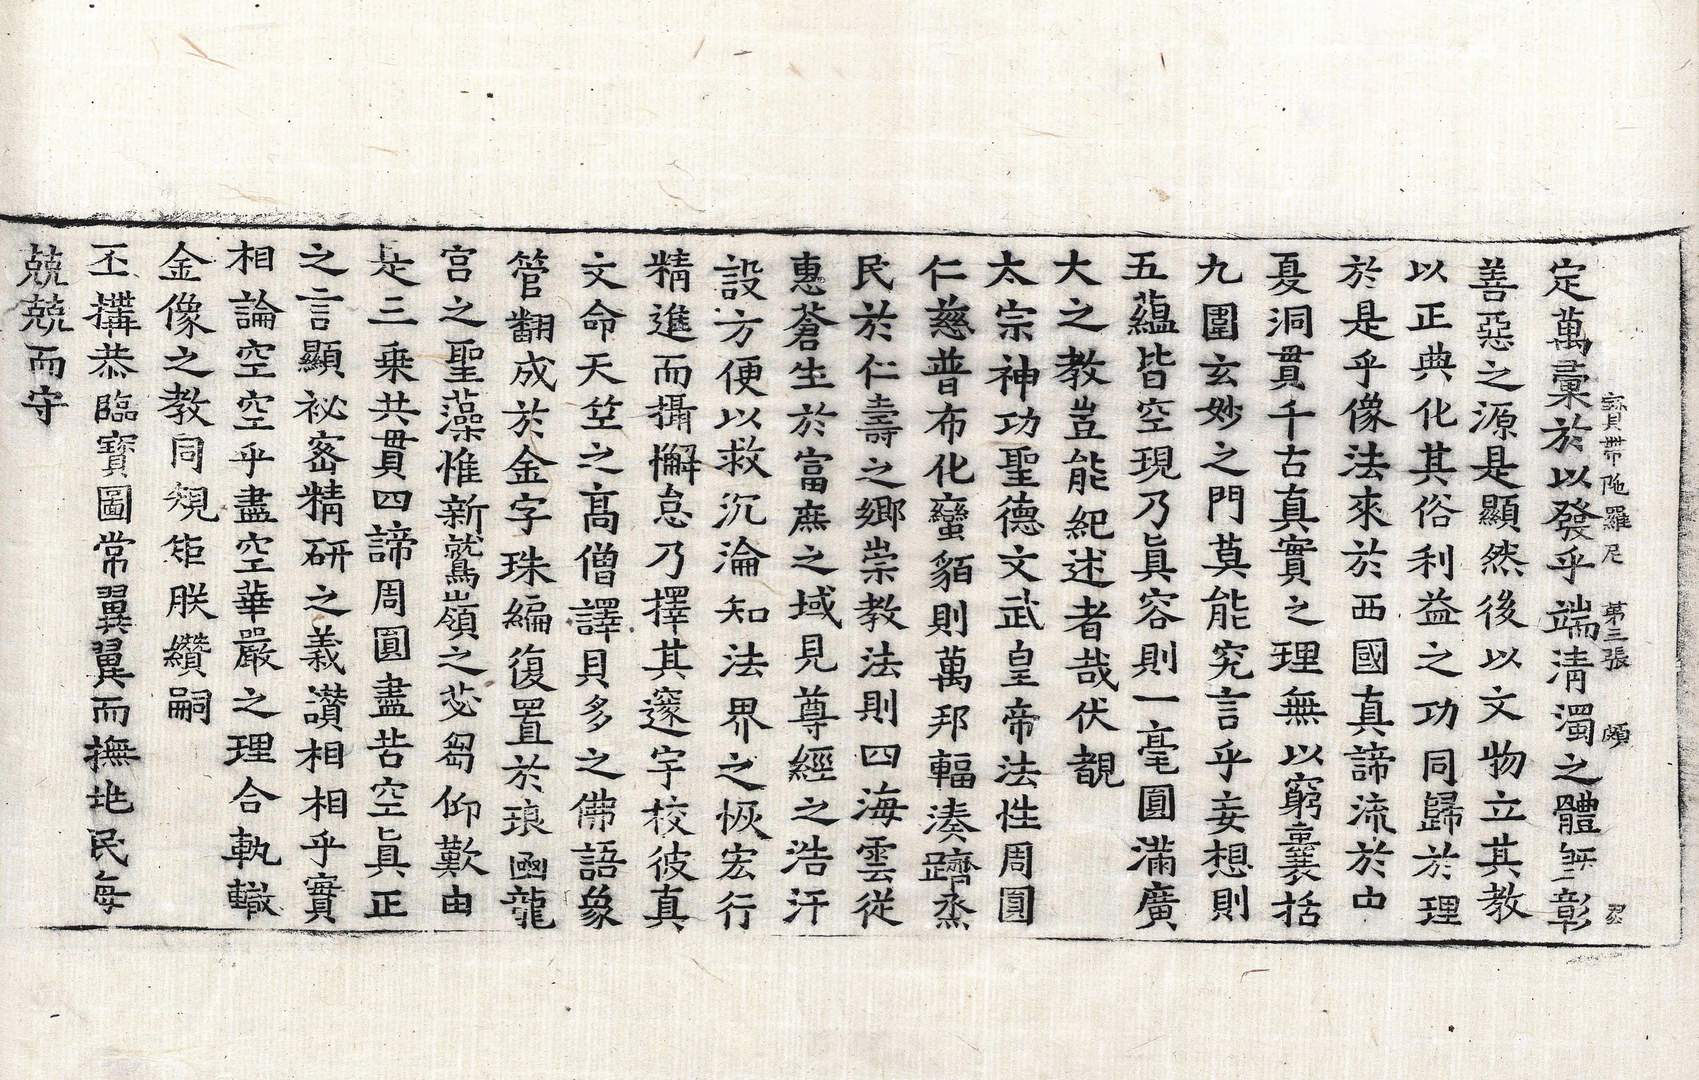 寶帶陁羅尼 第三張 頗
定萬彙於以發乎端淸濁之體無彰
善惡之源是顯然後以文物立其教
以正典化其俗利益之功同歸於理
於是乎像法來於西國真諦流於由
夏洞貫千古真實之理無以窮囊括
九圍玄妙之門莫能究言乎妄想則
五蘊皆空現乃真容則一毫圓滿廣
大之教豈能紀述者哉伏覩
太宗神功聖德文武皇帝法性周圓
仁慈普布化蠻貊則萬邦輻湊躋烝
民於仁壽之鄉崇教法則四海雲從
惠蒼生於富庶之域見尊經之浩汗
設方便以救沉淪知法界之恢宏行
精進而攝懈怠乃擇其邃宇校彼真
文命天竺之高僧譯貝多之佛語象
管翻成於金字珠編復置於琅函龍
宮之聖藻惟新鷲嶺之苾芻仰歎由
是三乗共貫四諦周圓盡苦空真正
之言顯祕密精研之義讃相相乎實
相論空空乎盡空華嚴之理合軌轍
金像之教同規矩朕纘嗣
丕搆恭臨寶圖常翼翼而撫地民每
兢兢而守